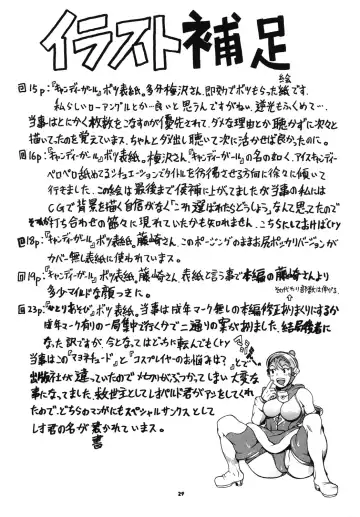 イラスト補足
回15p:『キャンディーガール』ボツ表紙。多分梅沢さん。即効でボツもらった絵です。
私らしいローアングルとか…良いと思うんですがねぃ、逆光もふくめて…。
当事はとにかく枚数をこなすのが優先されて、ダメな理由とか聴かずに次々と
描いてったのを覚えています。ちゃんとダメ出し聴いて次に活かせば良かったのに。
回16p:『キャンディーガール』ボツ表紙。梅沢さん。『キャンディーガール』の名の如く、アイスキャンディー
ペロペロ舐めるシチュエーションでタイトルを彷彿させる方向に徐々に傾いて
行きました。この絵は最後まで候補に上がってましたが当事の私には
CGで背景を描く自信がなく「これ選ばれたらどうしよう」なんて思ってたので
それが打ち合わせの節々に現れていたかも知れません。こちらにしておけばcry
回18p:『キャンディーガール』ボツ表紙。藤崎さん。このポージングのままお尻ポッカリバージョンが
カバー無し表紙に使われています。
回19p:『キャンディーガール』ボツ表紙。藤崎さん。表紙と言う事で本編の藤崎さんより
多少マイルドな顔つきに。
回23p:『ひとりあそび』ボツ表紙。当事は成年マーク無しの本編修正ありまくりにするか
成年マーク有りの一局集中で行くかで二通りの案がありました。結局後者に
なった訳ですが、今となってはどちらに転んでもcry
当事はこの『マヨネチュード』と『コスプレイヤーのお悩みは?』とで
出版社が違っていたのでメカクリがぶつかってしまい大変な
事になってました。救世主としてレオパルド君がアシをしてくれ
たので、どちらのマンガにもスペシャルサンクスとして
レオ君の名が書かれています。
29